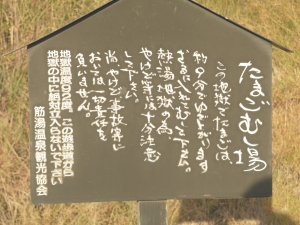 たまごむし場
この地獄でたまごは
約9分でゆであがります
熱湯地獄の為
やけど等には十分注意
して下さい。
尚、やけど事故等に
おいては一切責任を
負いません。
地獄温度92度、この遊歩道から
地獄の中に絶対立入らないで下さい
筋湯温泉観光協会